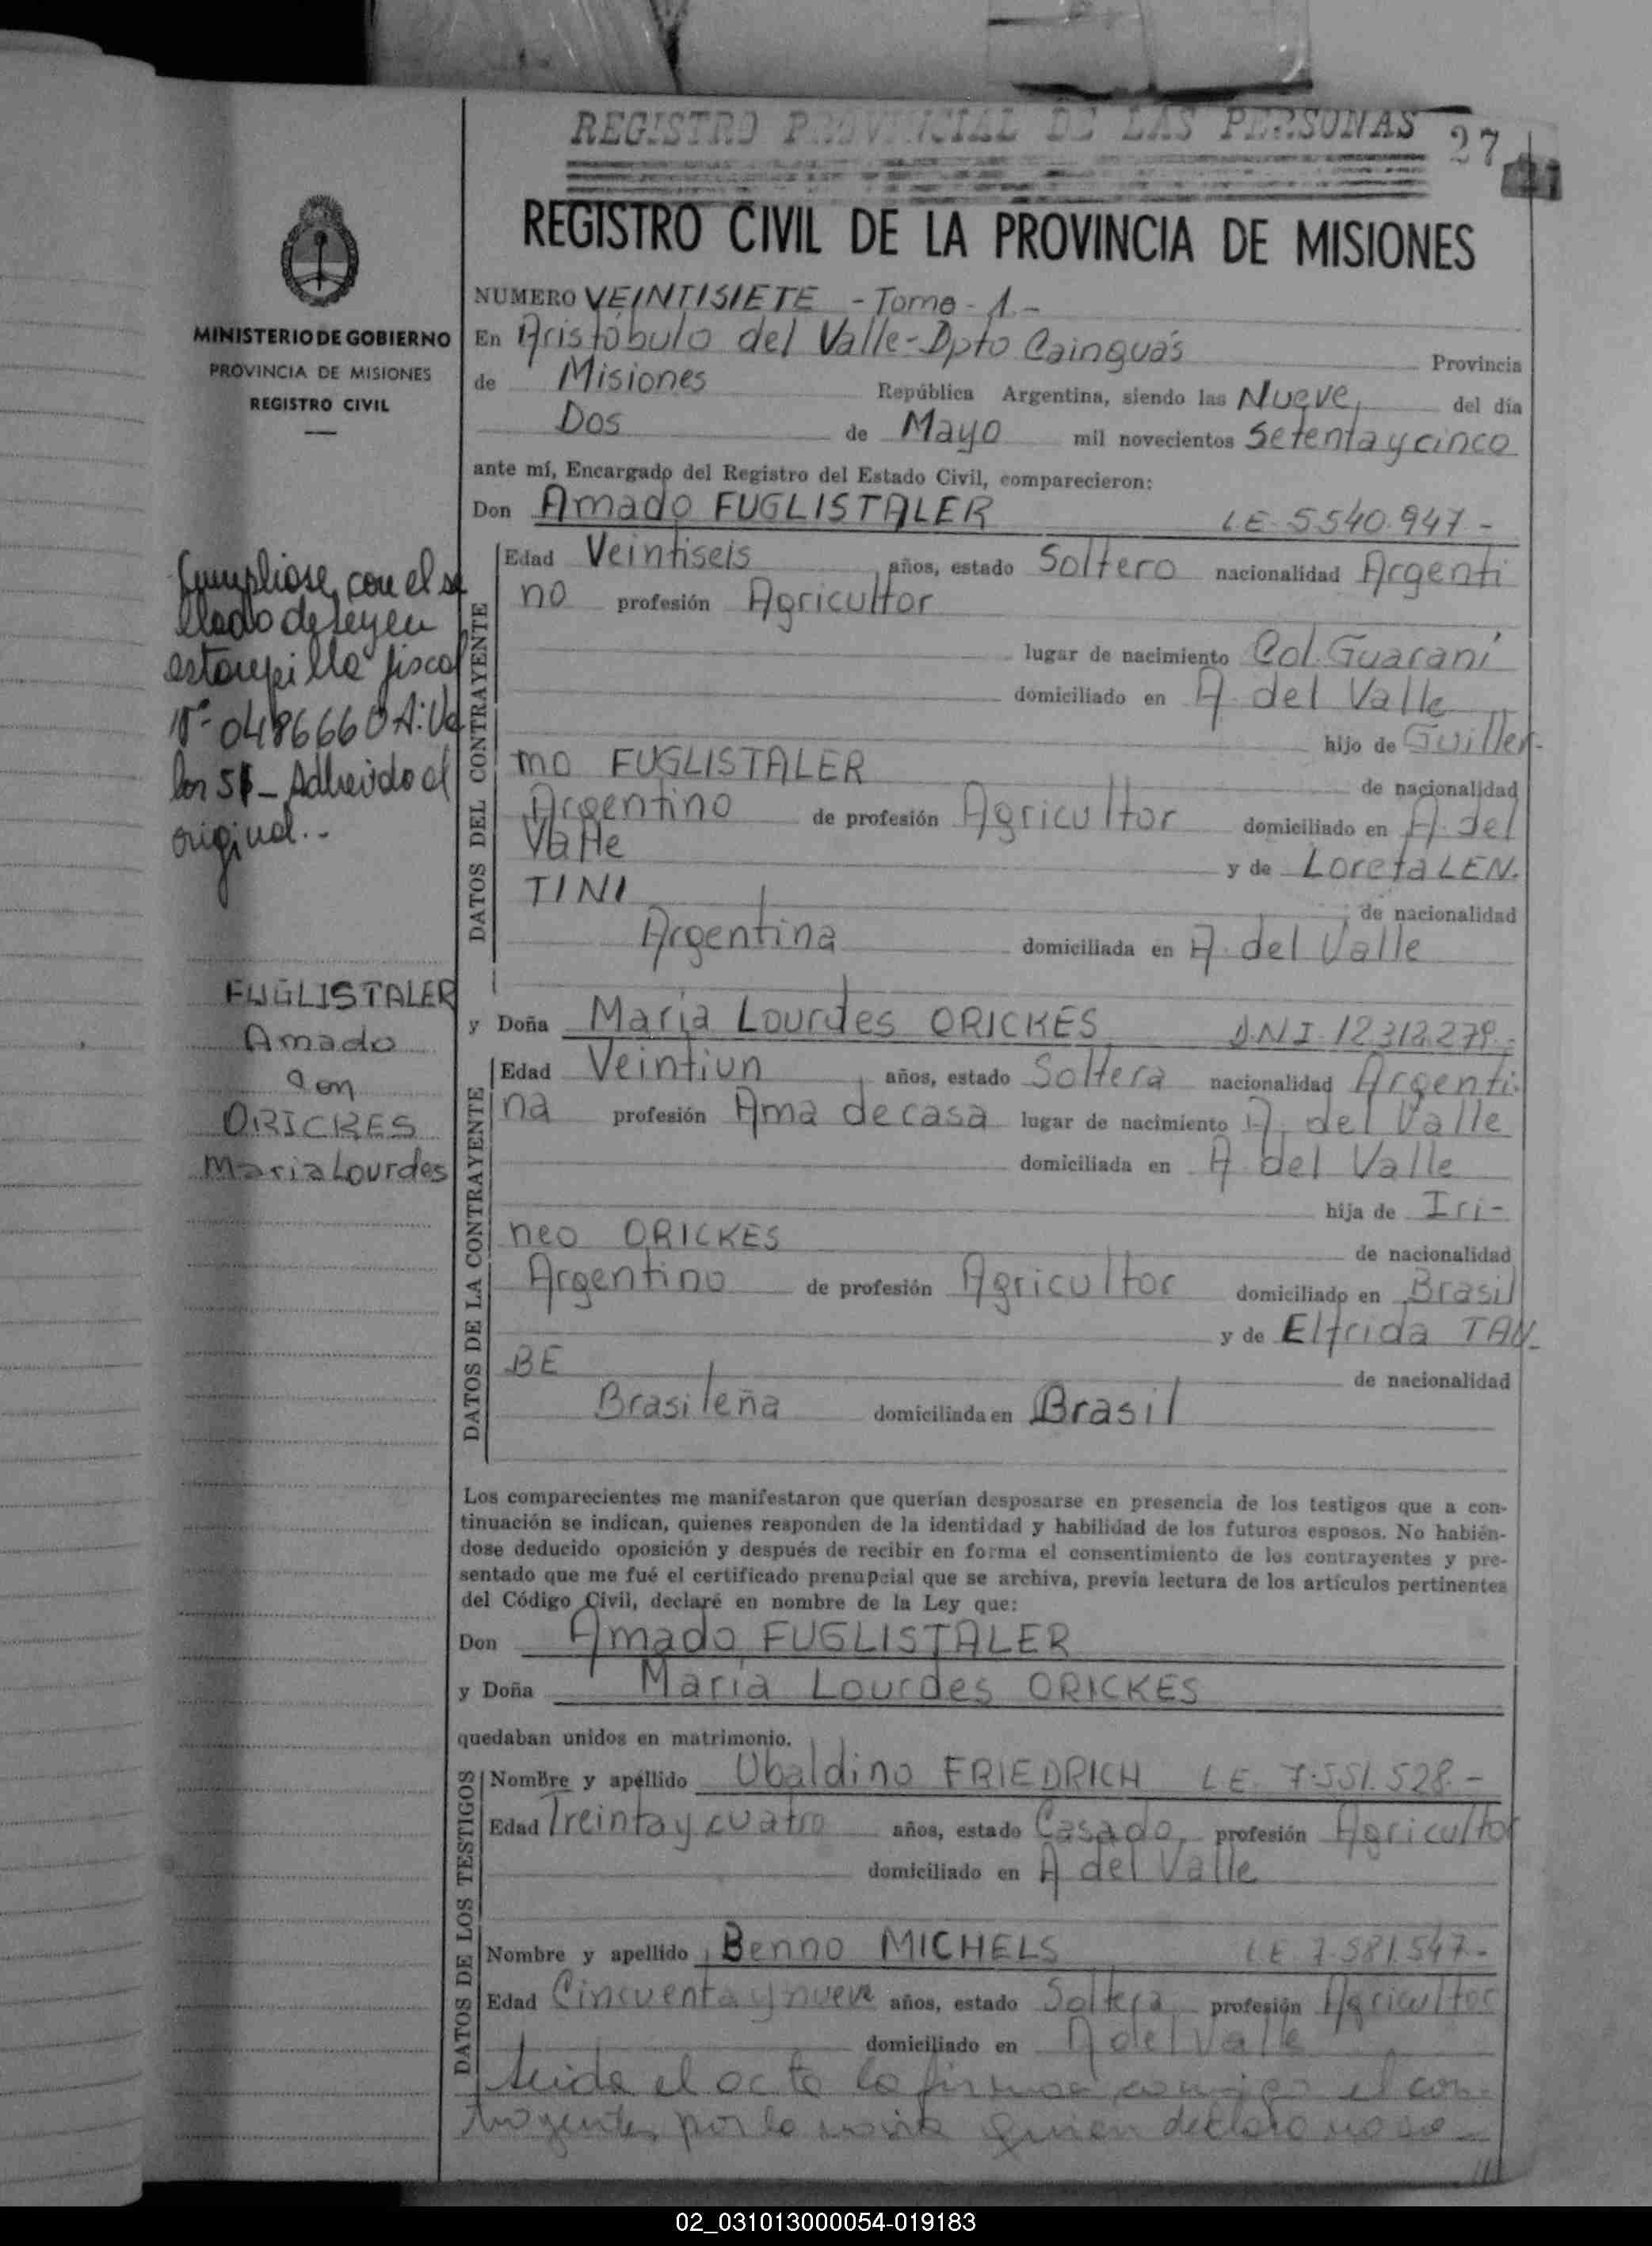 REGISTRO PROVINCIAL DE LAS PERSONAS
27
REGISTRO CIVIL DE LA PROVINCIA DE MISIONES
MINISTERIO DE GOBIERNO
PROVINCIA DE MISIONES
REGISTRO CIVIL
NUMERO VEINTISIETE - Tomo - 1.-
En Aristóbulo del Valle-Dpto Cainguás Provincia
de Misiones República Argentina, siendo las Nueve, del día
Dos de Mayo mil novecientos Setenta y cinco
ante mí, Encargado del Registro del Estado Civil, comparecieron:
Don Amado FUGLISTALER LE 5540.947-
Cumpliose con el se
llado de ley en
estampilla fiscal
Nº 0486660 A: Va
lor 5$ - Adherido al
original.-
FUGLISTALER
Amado
Con
ORICKES
Maria Lourdes
DATOS DEL CONTRAYENTE
Edad Veintiseis años, estado Soltero nacionalidad Argenti
no profesión Agricultor
lugar de nacimiento Col. Guaraní
domiciliado en A. del Valle
hijo de Guiller-
mo FUGLISTALER
de nacionalidad
Argentino de profesión Agricultor domiciliado en A. del
Valle y de Loreta LEN.
TINI
de nacionalidad
Argentina domiciliada en A. del Valle
y Doña María Lourdes ORICKES D.N.I 12.312.279.-
DATOS DE LA CONTRAYENTE
Edad Veintiun años, estado Soltera nacionalidad Argenti
na profesión Ama de casa lugar de nacimiento A. del Valle
domiciliada en A. del Valle
hija de Iri-
neo ORICKES
de nacionalidad
Argentino de profesión Agricultor domiciliado en Brasil
y de Elfrida TAN-
BE
de nacionalidad
Brasileña domiciliada en Brasil
Los comparecientes me manifestaron que querían desposarse en presencia de los testigos que a con-
tinuación se indican, quienes responden de la identidad y habilidad de los futuros esposos. No habién-
dose deducido oposición y después de recibir en forma el consentimiento de los contrayentes y pre-
sentado que me fué el certificado prenupcial que se archiva, previa lectura de los artículos pertinentes
del Código Civil, declaré en nombre de la Ley que:
Don Amado FUGLISTALER
y Doña María Lourdes ORICKES
quedaban unidos en matrimonio.
DATOS DE LOS TESTIGOS
Nombre y apellido Ubaldino FRIEDRICH LE. 7.551.528.-
Edad Treinta y cuatro años, estado Casado, profesión Agricultor
domiciliado en A del Valle
Nombre y apellido Benno MICHELS LE 7.581.547.-
Edad Cincuenta y nueve años, estado Soltera profesión Agricultor
domiciliado en A del Valle
Leida el acta la firman conmigo el con-
trayente, por la novia quien declara no sa-
02_031013000054-019183